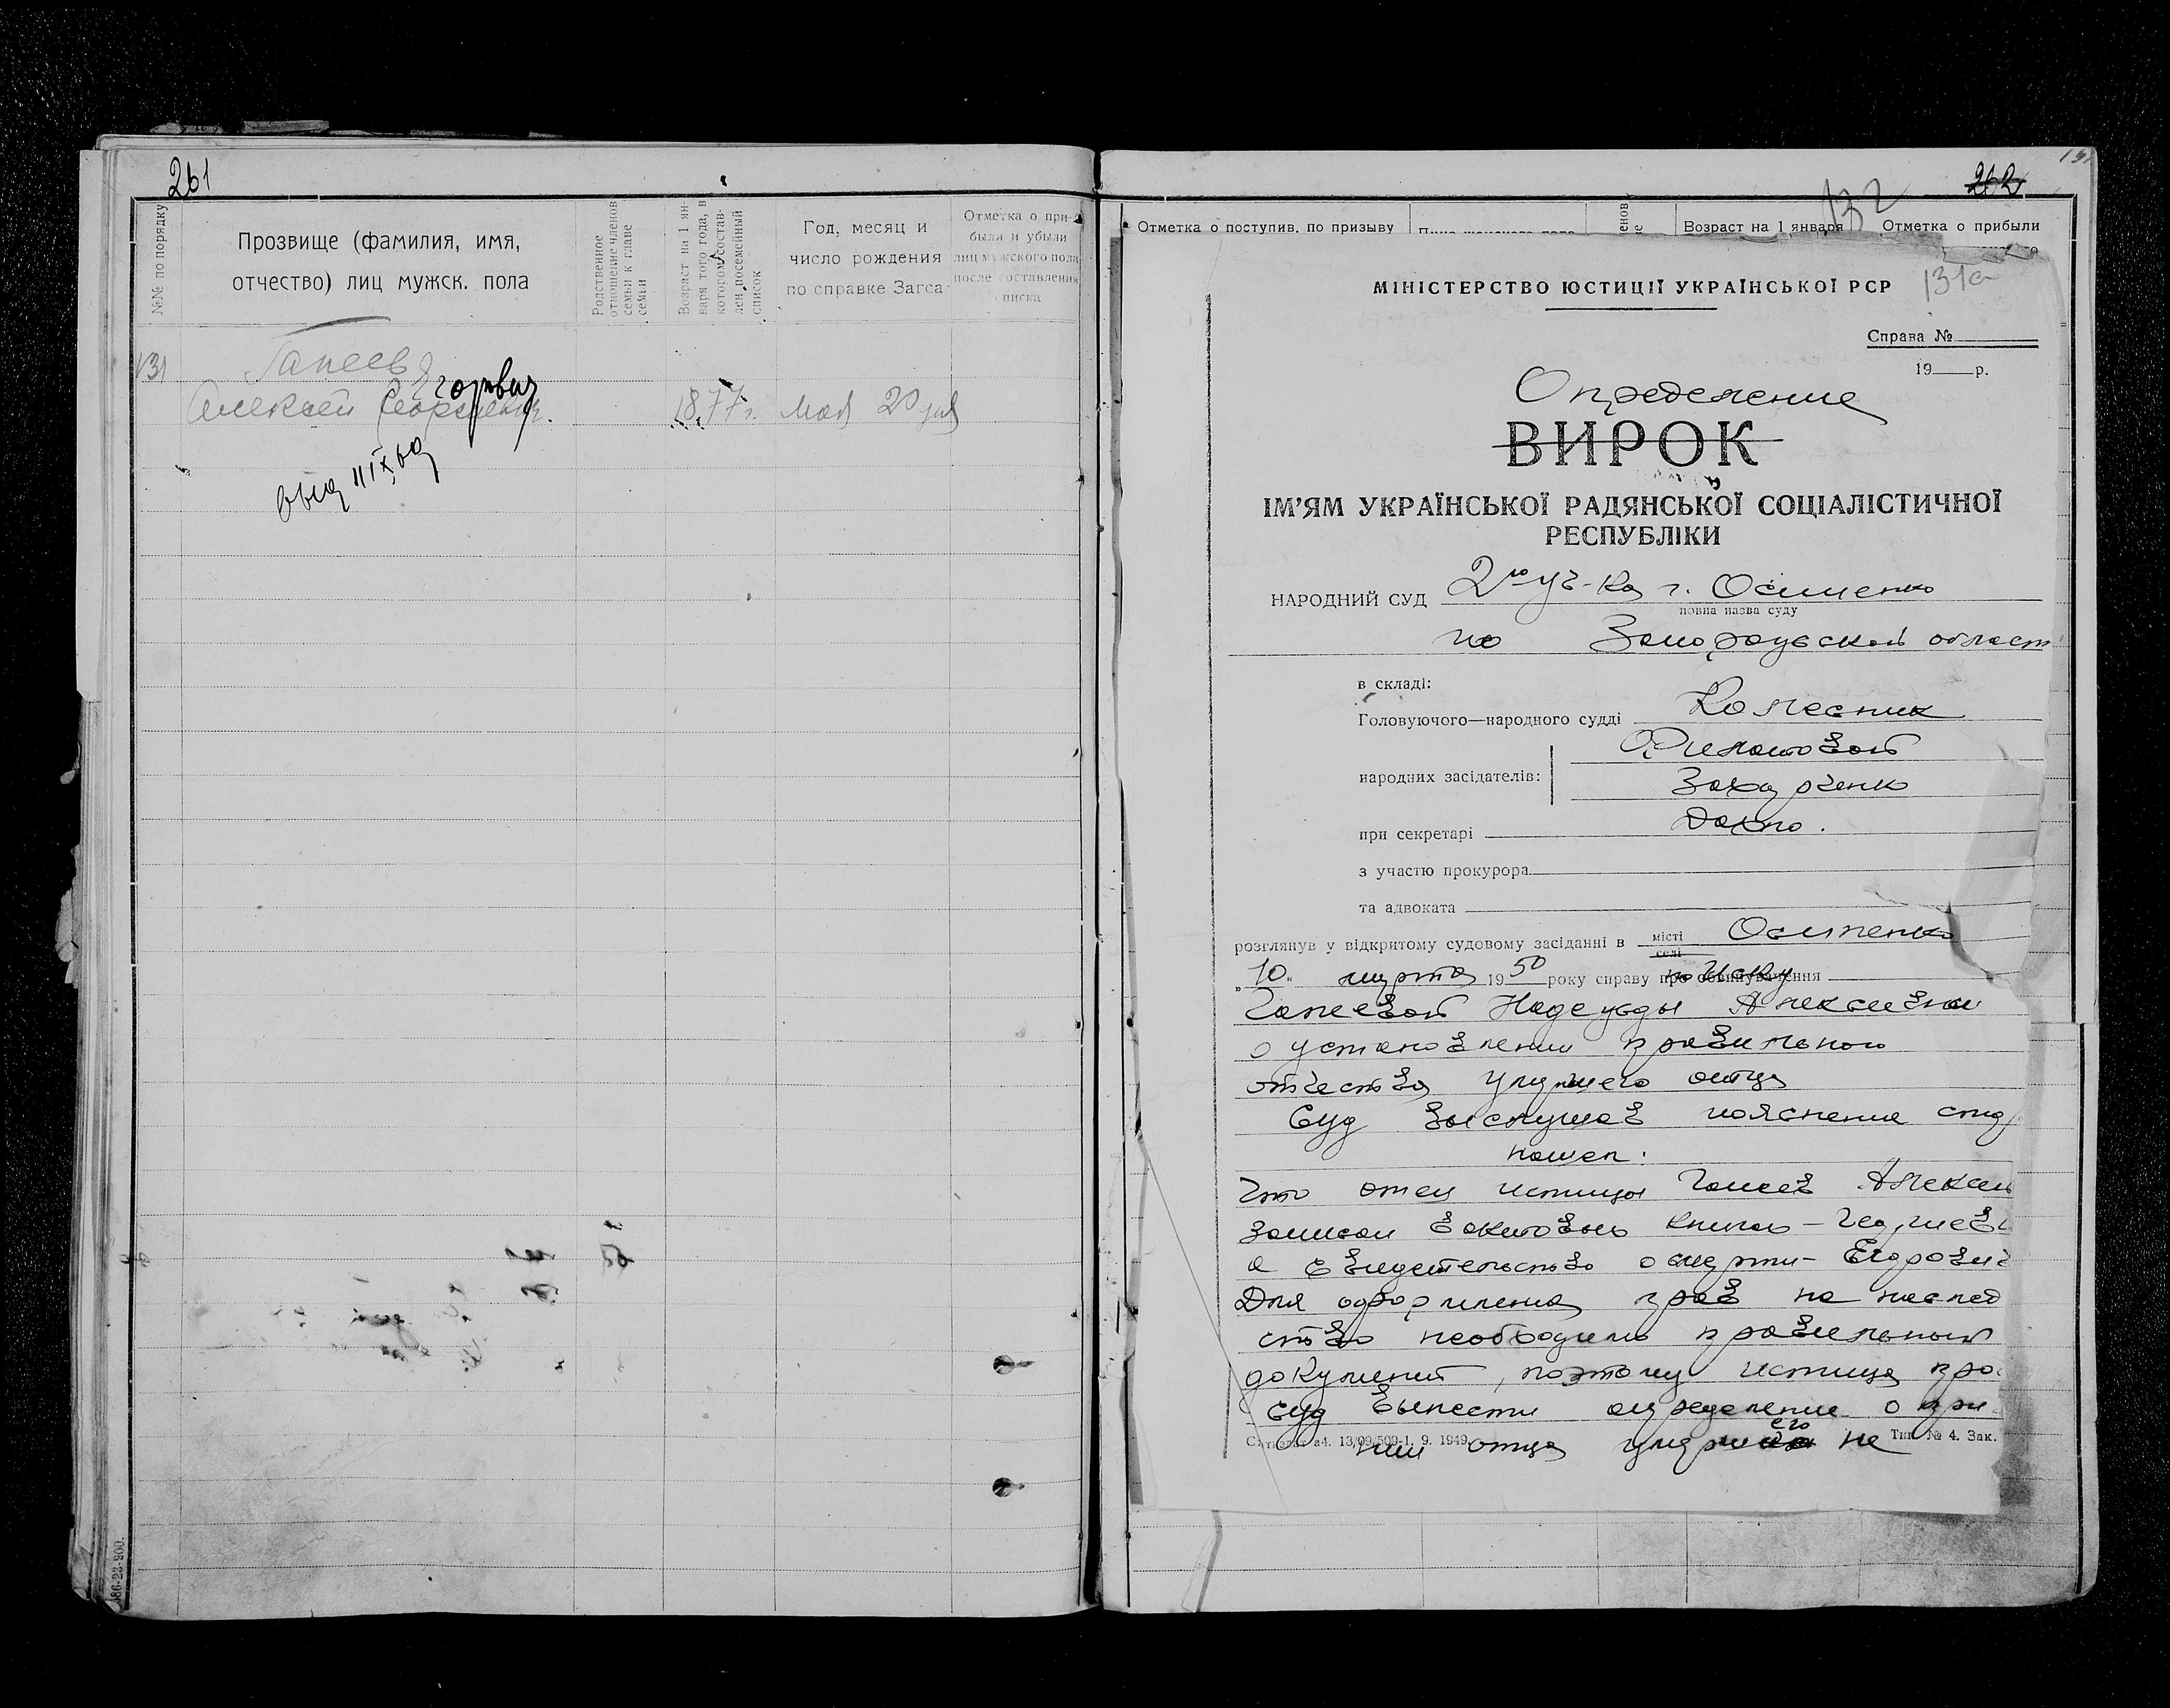 261
№№ по порядку
Прозвище (фамилия, имя,
отчество) лиц мужск. пола
Родственное
отношение членов
семьи к главе
семьи
Возраст на 1 ян-
варя того года, в
котором состав-
лен посемейный
список
Год, месяц и
число рождения
по справке Загса
Отметка о при-
были и убыли
лиц мужского пола
после составления
списка
131
Гапеев
Егорович
Алексей Георгиевич.
1877 г. мая 20 дня
86-23-200.
262
132
Отметка о поступив. по призыву
Возраст на 1 января
Отметка о прибыли
131а
МІНІСТЕРСТВО ЮСТИЦІЇ УКРАЇНСЬКОЇ РСР
Справа №
19 р.
Определение
ВИРОК
ІМ’ЯМ УКРАЇНСЬКОЇ РАДЯНСЬКОЇ СОЦІАЛІСТИЧНОЇ
РЕСПУБЛІКИ
НАРОДНИЙ СУД 2го уч-ка г. Осипенко
повна назва суду
по Запорожской област
в складі:
Головуючого—народного судді Колесник
народних засідателів:
Захарченко
при секретарі Дахно.
з участю прокурора
та адвоката
розглянув у відкритому судовому засіданні в місті Осипенко
селі
„10“ марта 1950 року справу про обвинувачення по иску
Гапеевой Надежды Алексеевны
о установлении правильного
отчества умершего отца
Суд выслушав пояснения
нашел:
Что отец истицы Гапеев Алексей
записан в актовых книгах – Георгиев
а свидетельство о смерти – Егорович
Для оформления прав на наслед
ство необходимо правильный
документ, поэтому истица про
суд вынести определение о при
нии отца умершего не
13/09/509-1. 9. 1949
Тип. № 4. Зак.